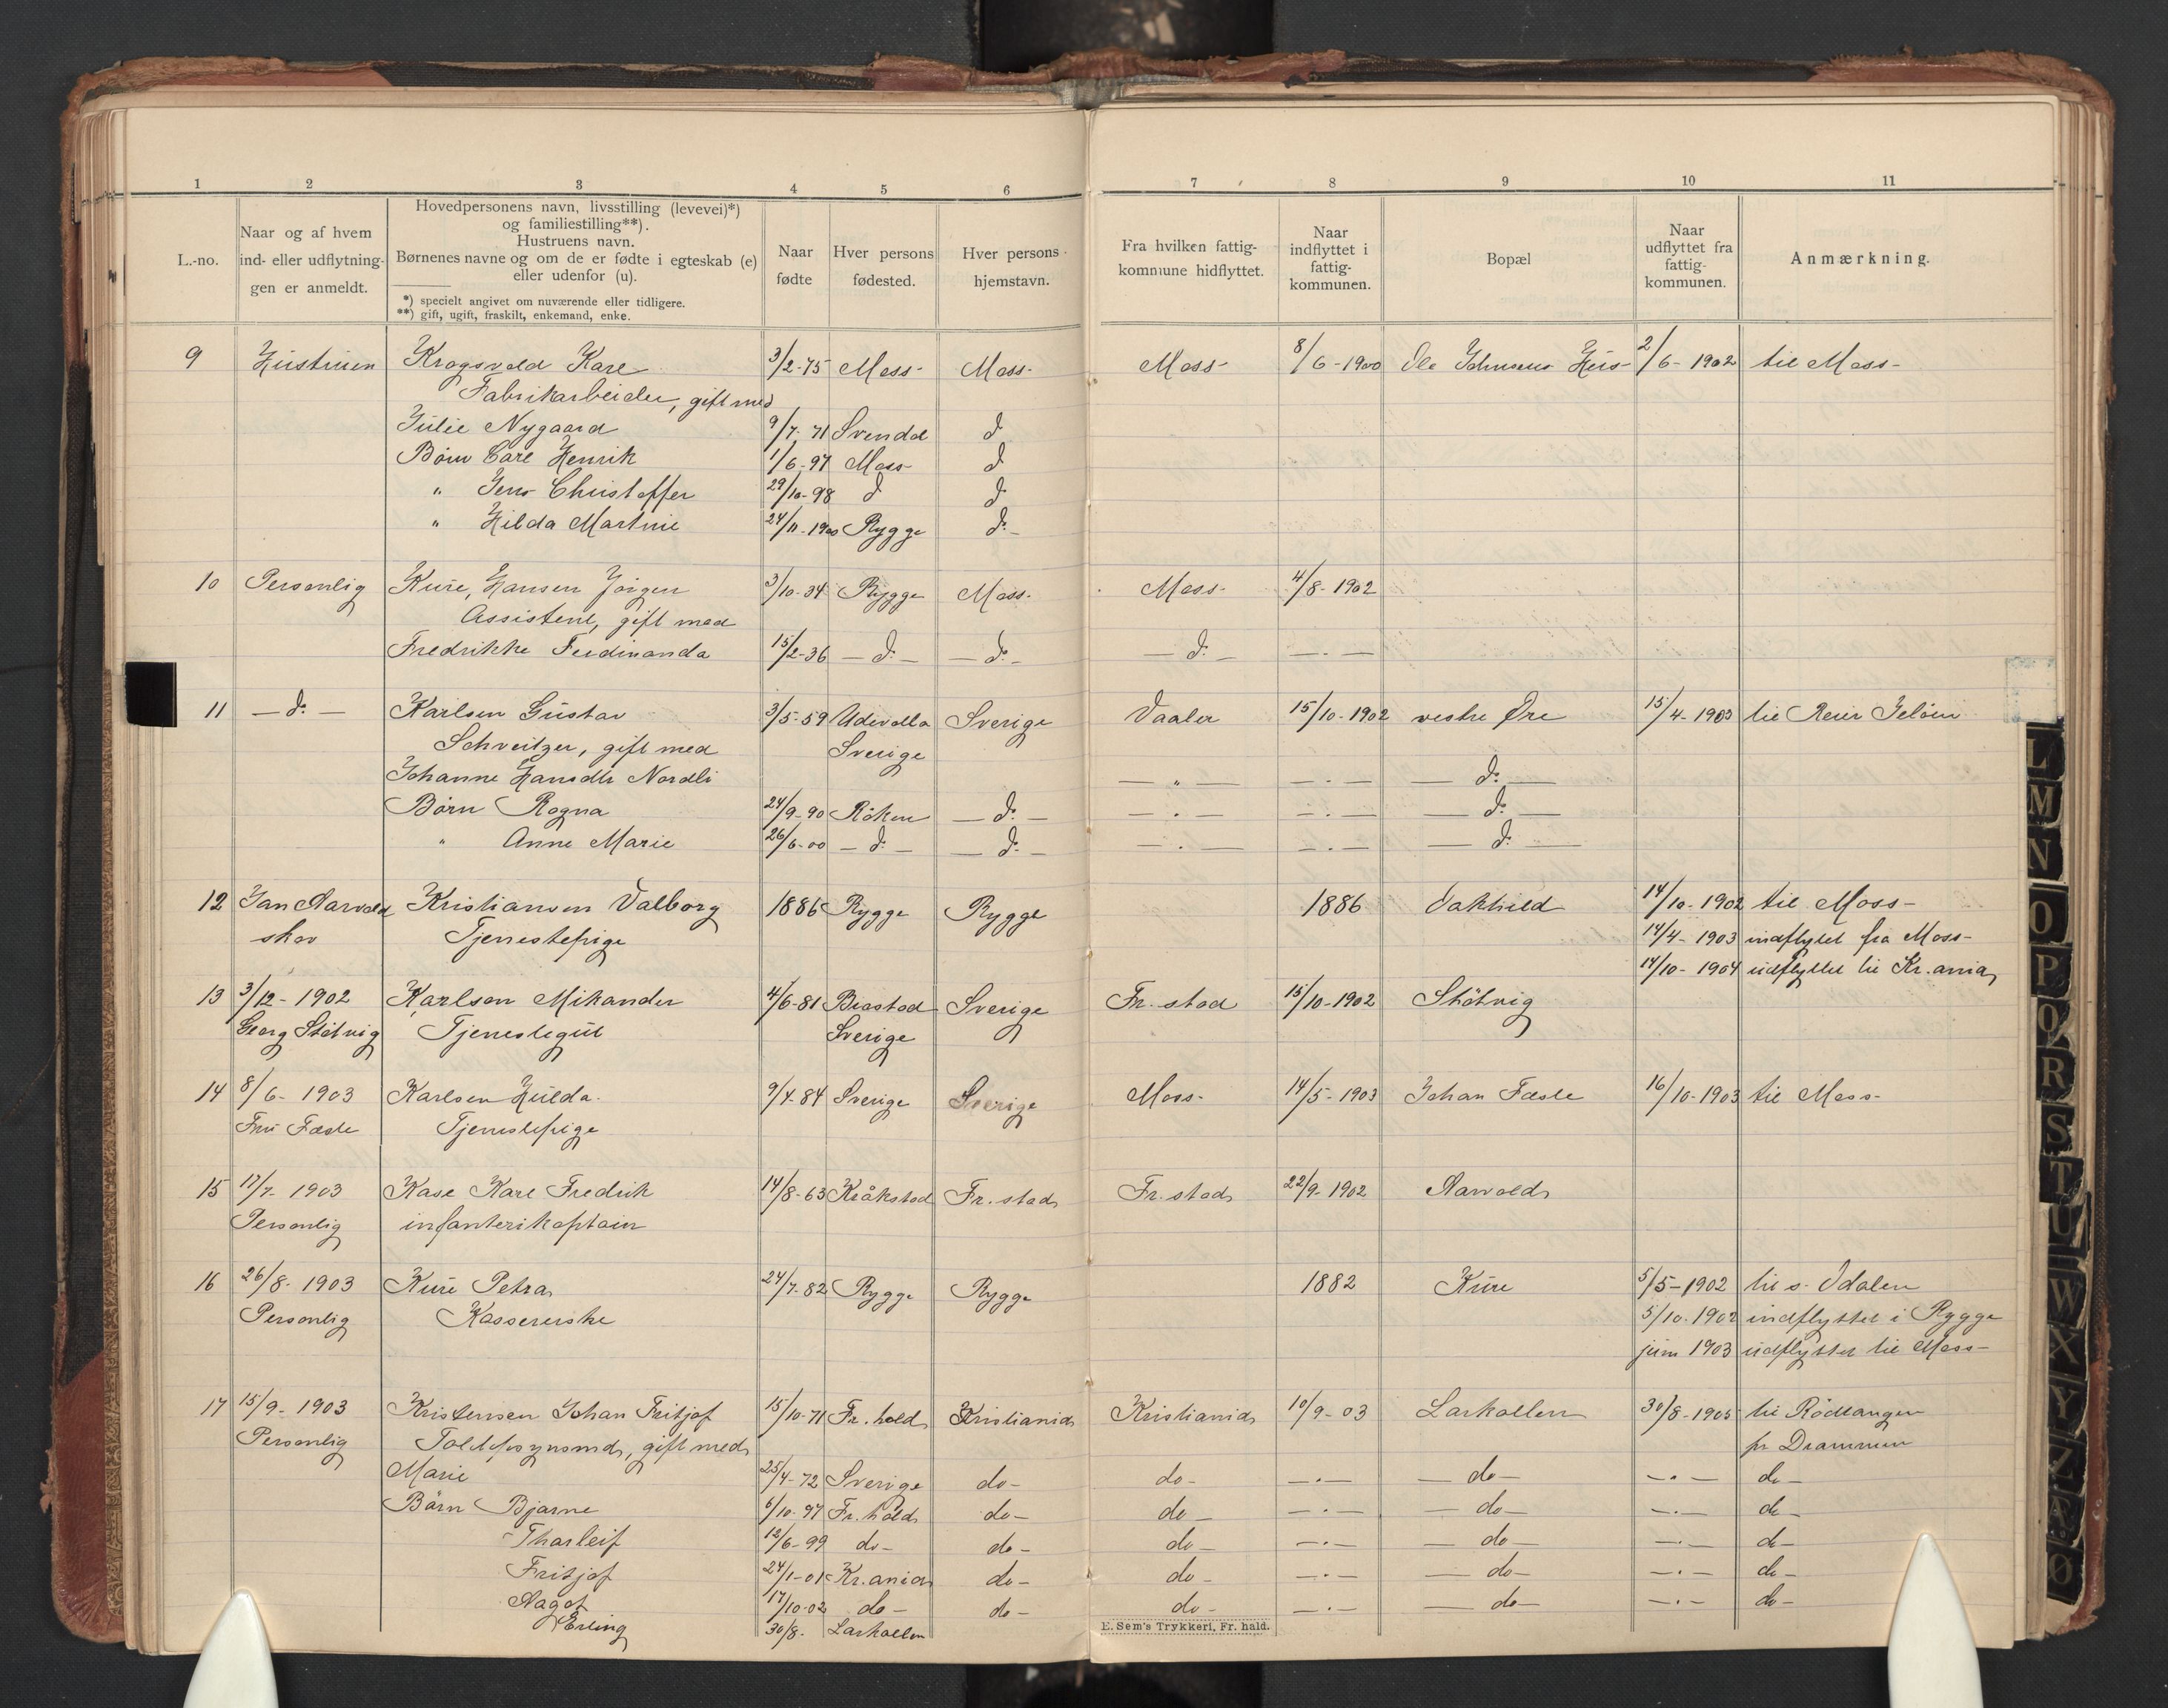 1 2 3 4 5 6 7 8 9 10 11
L.-no.
Naar og af hvem
ind- eller udflytnin-
gen er anmeldt.
Hovedpersonens navn, livsstilling (levevei)*)
og familiestilling**).
Hustruens navn.
Børnenes navne og om de er fødte i egteskab (e)
eller udenfor (u).
*) specielt angivet om nuværende eller tidligere.
**) gift, ugift, fraskilt, enkemand, enke.
Naar
fødte
Hver persons
fødested.
Hver persons
hjemstavn.
Fra hvilken fattig-
kommune hidflyttet.
Naar
indflyttet i
fattig-
kommunen.
Bopæl
Naar
udflyttet fra
fattig-
kommunen.
Anmærkning.
9 Hustruen Krogsvold Karl 3/2-75 Moss Moss Moss 8/6-1900 Ole Johnsens Hus 2/6-1902 til Moss
Fabrikarbeider, gift med
Julie Nygaard 9/7-71 Svendal d
Børn Carl Henrik 1/6-97 Moss d
" Jens Christoffer 29/10-98 d d
" Hilda Martine 24/11-1900 Rygge do
10 Personlig Kure, Hansen Jørgen 3/10-34 Rygge Moss Moss 4/8-1902
Assistent, gift med
Fredrikke Ferdinanda 15/2-36 — do — — do — — do — — . —
11 — do — Karlsen Gustav 3/5-59 Udevalla Sverige Vaaler 15/10-1902 vestre Øre 15/4-1903 til Reier Jeløen
Schveitzer, gift med Sverige
Johanne Hansdtr Nordli — " — — . — — do —
Børn Ragna 24/9-90 Røken — do — — . — — . — — do —
" Anne Marie 26/6-00 — do — — do — — . — — . — — do —
12 Jan Aarvold Kristiansen Valborg 1886 Rygge Rygge 1886 Vakhild 14/10-1902 til Moss
skov Tjenestepige 14/4-1903 indflyttet fra Moss
14/10-1904 udflyttet til Kr.ania
13 3/12-1902 Karlsen Mikander 4/6-81 Brastad Sverige Fr.stad 15/10-1902 Støtvig
Georg Støtvig Tjenestegut Sverige
14 8/6-1903 Karlsen Hulda 9/4-84 Sverige Sverige Moss 14/5-1903 Johan Fæste 16/10-1903 til Moss
Fru Fæste Tjenestepige
15 17/7-1903 Kase Karl Fredrik 14/8-63 Kråkstad Fr.stad Fr.stad 22/9-1902 Aarvold
Personlig infanterikaptain
16 26/8-1903 Kure Petra 24/7-82 Rygge Rygge 1882 Kure 5/5-1902 til s. Odalen
Personlig Kassererske 5/10-1902 indflyttet i Rygge
juni 1903 udflyttet til Moss
17 15/9-1903 Kristensen Johan Fritjof 15/10-71 Fr.hald Kristiania Kristiania 10/9-03 Larkollen 30/8-1905 til Rødtangen
Personlig Toldopsynsmd, gift med pr Drammen
Marie 25/4-72 Sverige do do — . — — do — — . — do
Børn Bjarne 6/10-97 Fr.hald do do — . — — do — — . — do
Tharleif 12/6-99 do do do — . — — do — — . — do
Fritjof 24/1-01 Kr.ania do do — . — — do — — . — do
Aagot 17/10-02 do do do — . — — do — — . — do
Erling 30/8- Larkollen
E. Sem's Trykkeri, Fr. hald.
L
M
N
O
P
Q
R
S
T
U
W
X
Y
Z
Æ
Ø